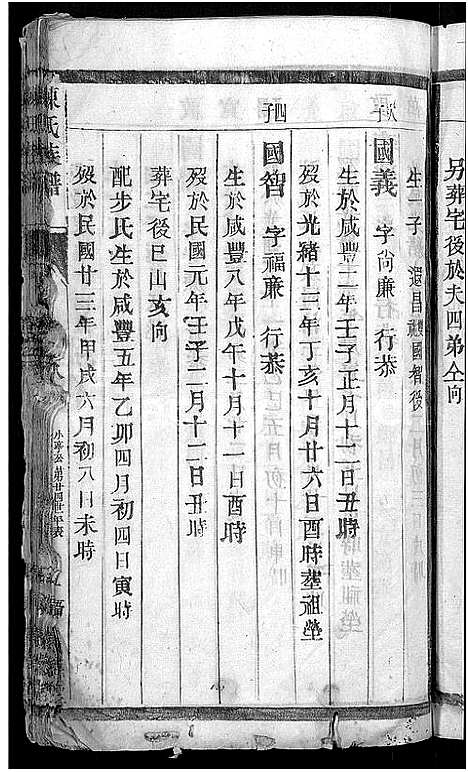 另葬宅後於夫四弟仝向
生一子 還昌 國智後
次子
國義 字尚廉 行恭
生於咸豐二年壬子正月十二日丑時
歿於光緒十三年丁亥十月廿六日酉時葬祖塋
四子
國智 字福廉 行恭
生於咸豐八年戊午十月十一日酉時
歿於民國元年壬子二月十二日丑時
葬宅後巳山亥向
配步氏生於咸豐五年乙卯四月初四日寅時
歿於民國廿三年甲戌六月初八日未時
陳氏族譜
第廿四世年表